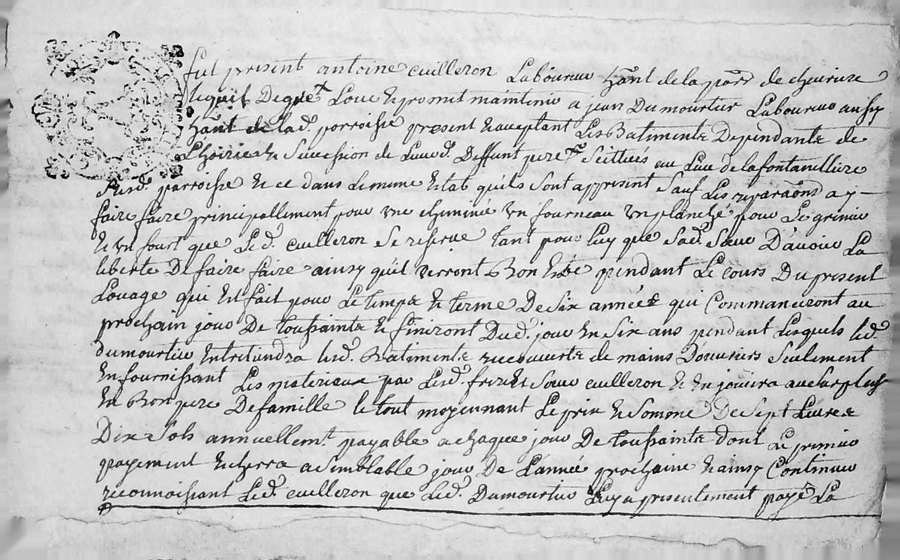 fut present antoine cuilleron Laboureur h.ant de la parr de cheuriere
lequel De gré Loue & promet maintenir a jean Dumourtier Laboureur aussy
h.ant de lad. parroisse present & acceptant Les Batiments Dependants de
Lhoirie & Succession de Deffunt pere Scittues au Lieu de lafontanilliere
parroisse & ce dans Le meme Estat quils Sont appresent Sauf Les reparaons a y
faire faire principallement pour une cheminée un fourneau un planché pour Le grenier
& un fourt que Led. cuilleron Se reserve tant pour Luy que Sad. Sœur D'avoir La
liberté De faire faire ainsy quil verront Bon Estre pendant Le cours Du present
Louage qui Est fait pour Le temps & terme De Six années qui Commanceront au
prochain jour De toussaints & finiront Dud. jour En Six ans pendant Lesquels led.
Dumourtier Entretiendra lesd. Batiments recouverts de mains D'ouvriers Seulement
En fournissant Les materiaux par Lesd. frere & Sœur cuilleron & En jouira au Surplus
En Bon pere De famille le tout moyennant Le prix & Somme De Sept Livres
Dix Sols annuellemt payable a chaque jour De toussaints dont Le premier
payement Echerra a Semblable jour De Lannée prochaine & ainsy Continuer
reconnoissant Led. cuilleron que Led. Dumourtier Luy a presentement payé La